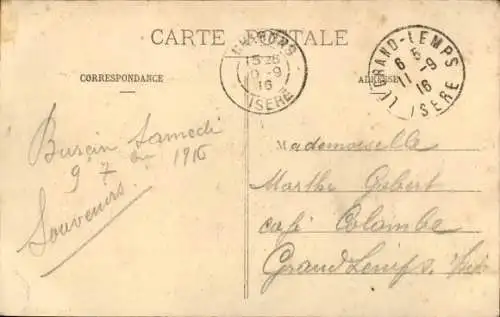 CARTE POSTALE
CORRESPONDANCE
ADRESSE
15 35
10 -9
16
ISERE
LE GRAND-LEMPS
6 5
11 -9
16
ISERE
Burcin Samedi
9 7bre 1916
Souvenirs.
Mademoiselle
Marthe Gubert
café Colambe
Grand Lemps. Isère